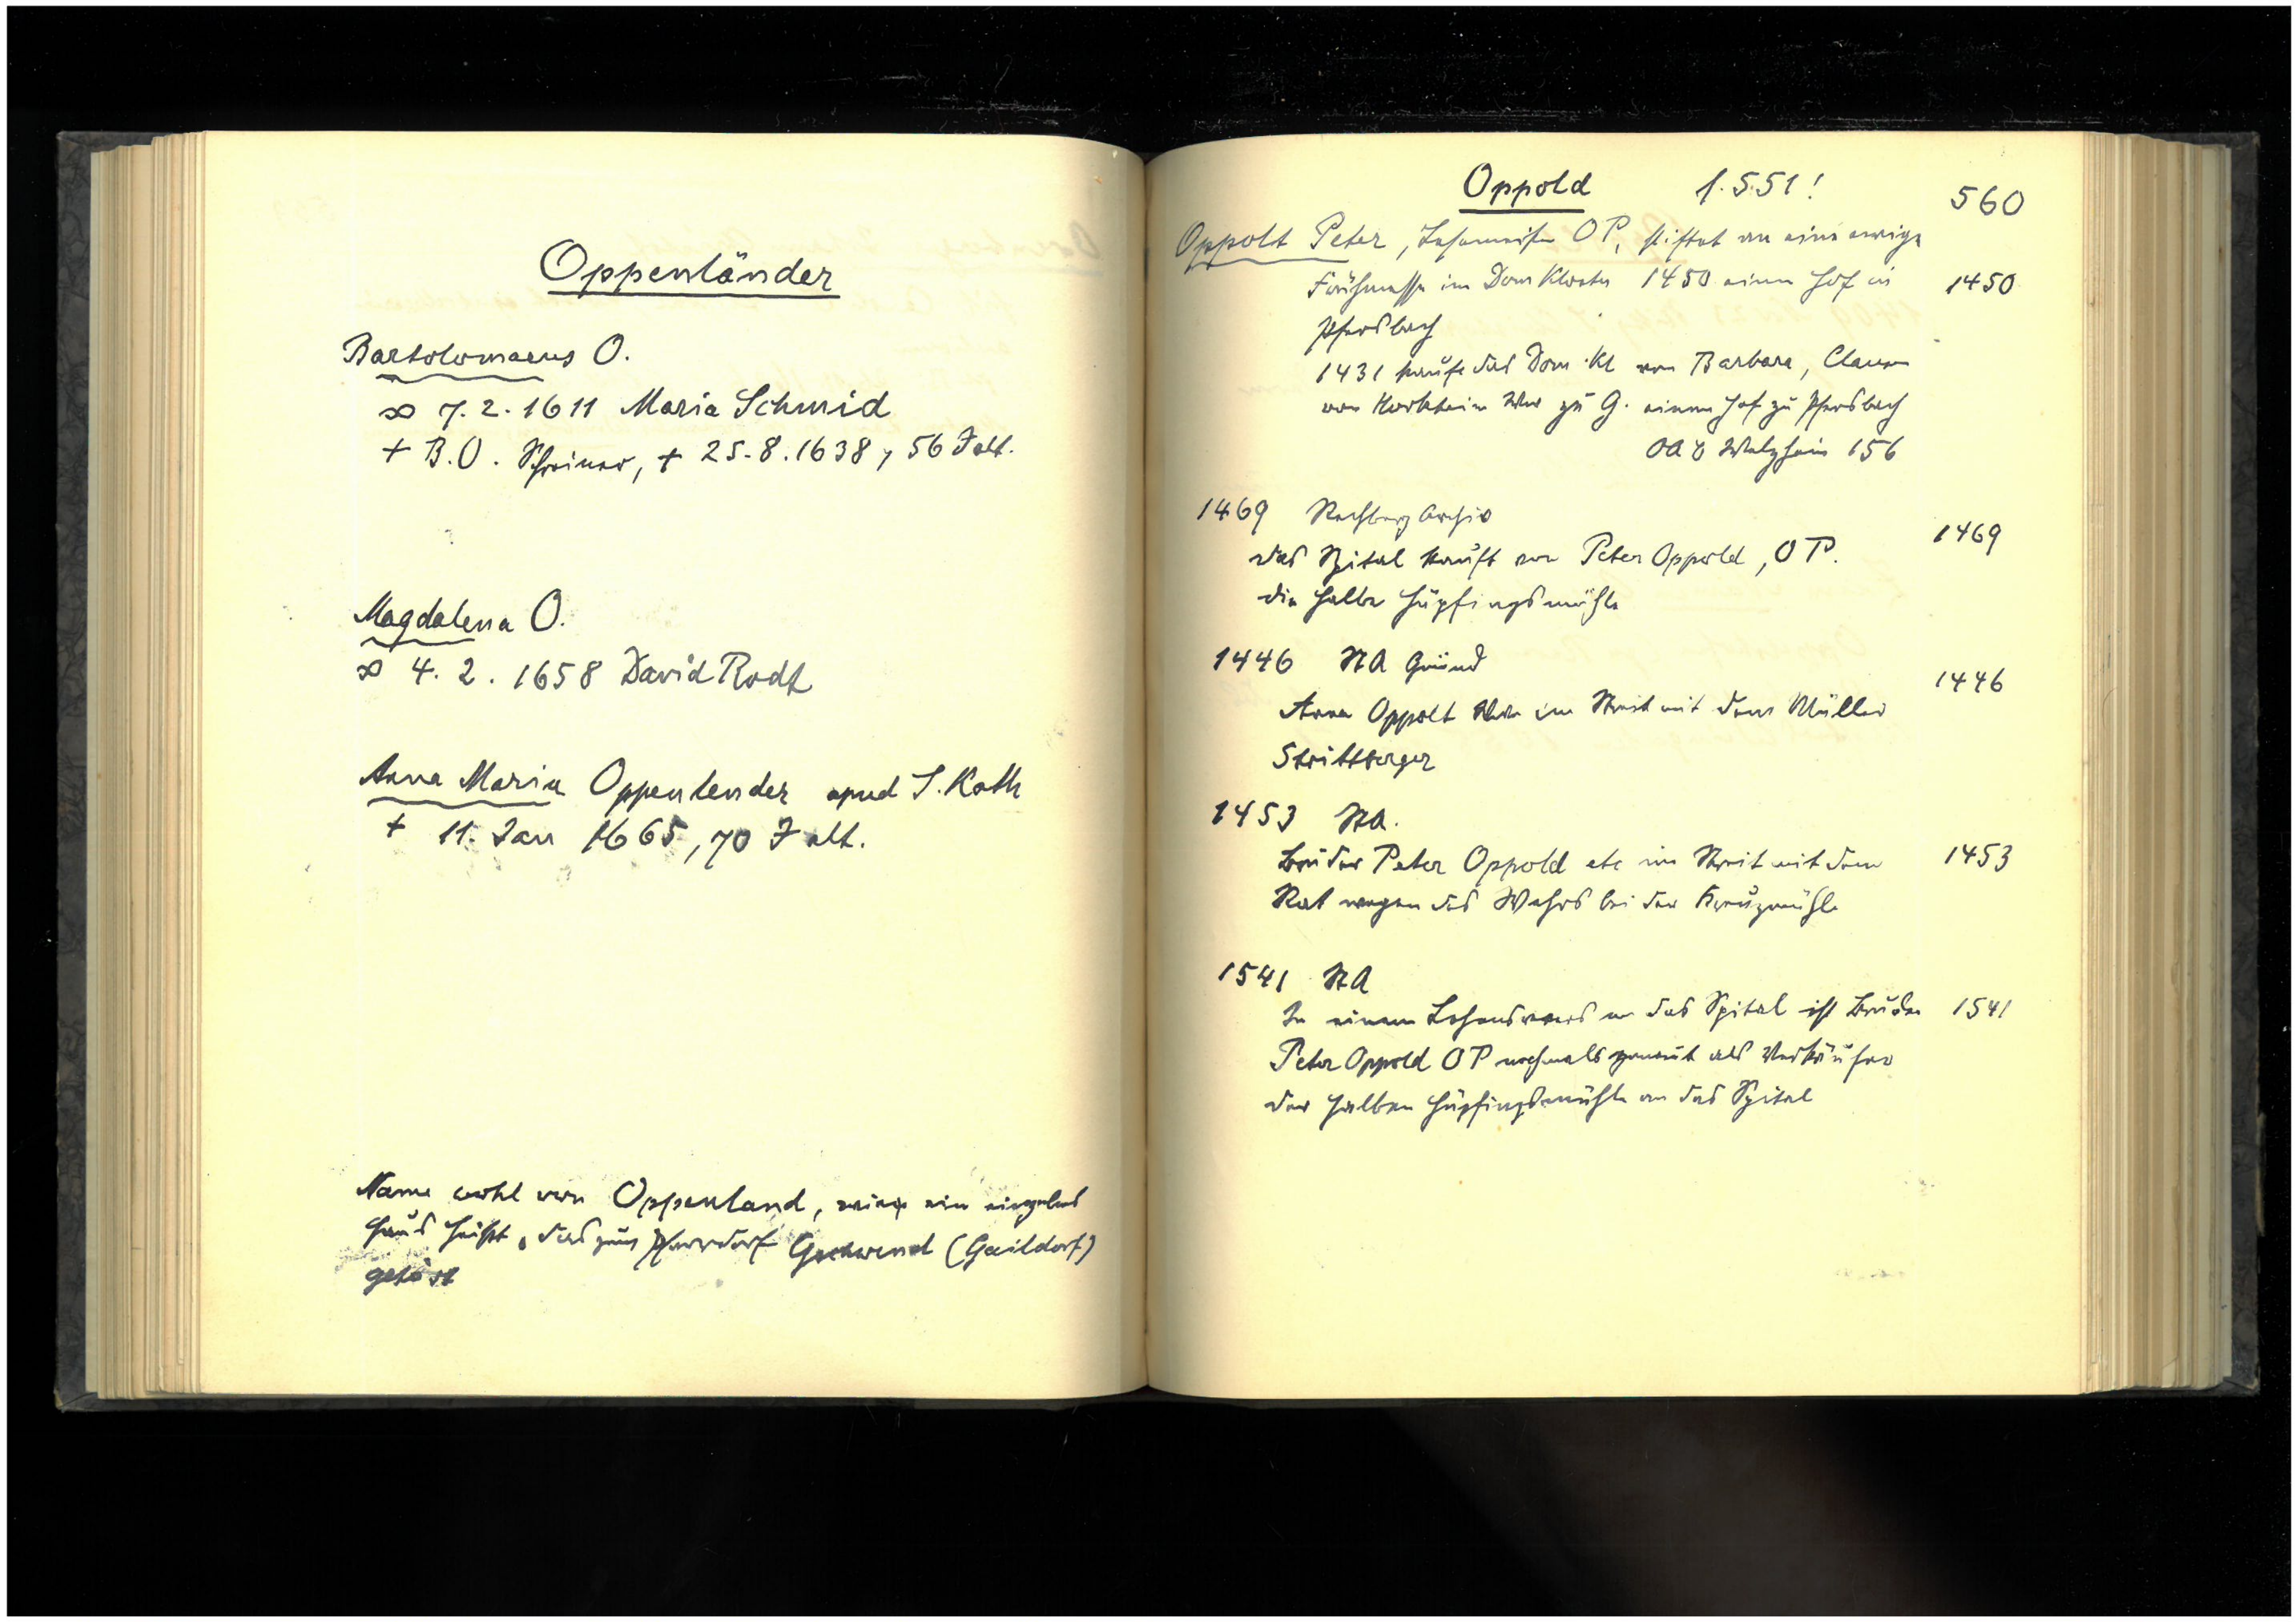 Oppenländer
Bartolomaeus O.
∞ 7. 2. 1611 Maria Schmid
+ B. O. Schreiner, + 25. 8. 1638, 56 J alt.
Magdalena O.
∞ 4. 2. 1658 David Rodt
Anna Maria Oppenlender apud S. Kath
+ 11. Jan 1665, 70 J alt.
Name wohl von Oppenland, ein einzelnes
Haus heißt, das zum Pfarrdorf Gschwend (Gaildorf)
gehört
Oppold f. S. 51! 560
Oppolt Peter, Lesemeister OP, stiftet an eine ewige
Frühmesse im Dom Kloster 1450 einen Hof in 1450
Pfersbach
1431 kaufte das Dom. Kl von Barbara, Clausen
von Horkheim Wwe zu G. einen Hof zu Pfersbach
OAB Welzheim 156
1469 Rechberg Archiv
das Spital kauft von Peter Oppold, OP. 1469
die halbe Hüpfingsmühle
1446 StA Gmünd
Anna Oppolt Wwe im Streit mit dem Müller 1446
Strittberger
1453 StA.
Bruder Peter Oppold etc im Streit mit dem 1453
Rat wegen des Wehrs bei der Kreuzmühle
1541 StA
In einem an das Spital ist Bruder 1541
Peter Oppold OP nochmals genannt als Verkäufer
der halben Hüpfingsmühle an das Spital